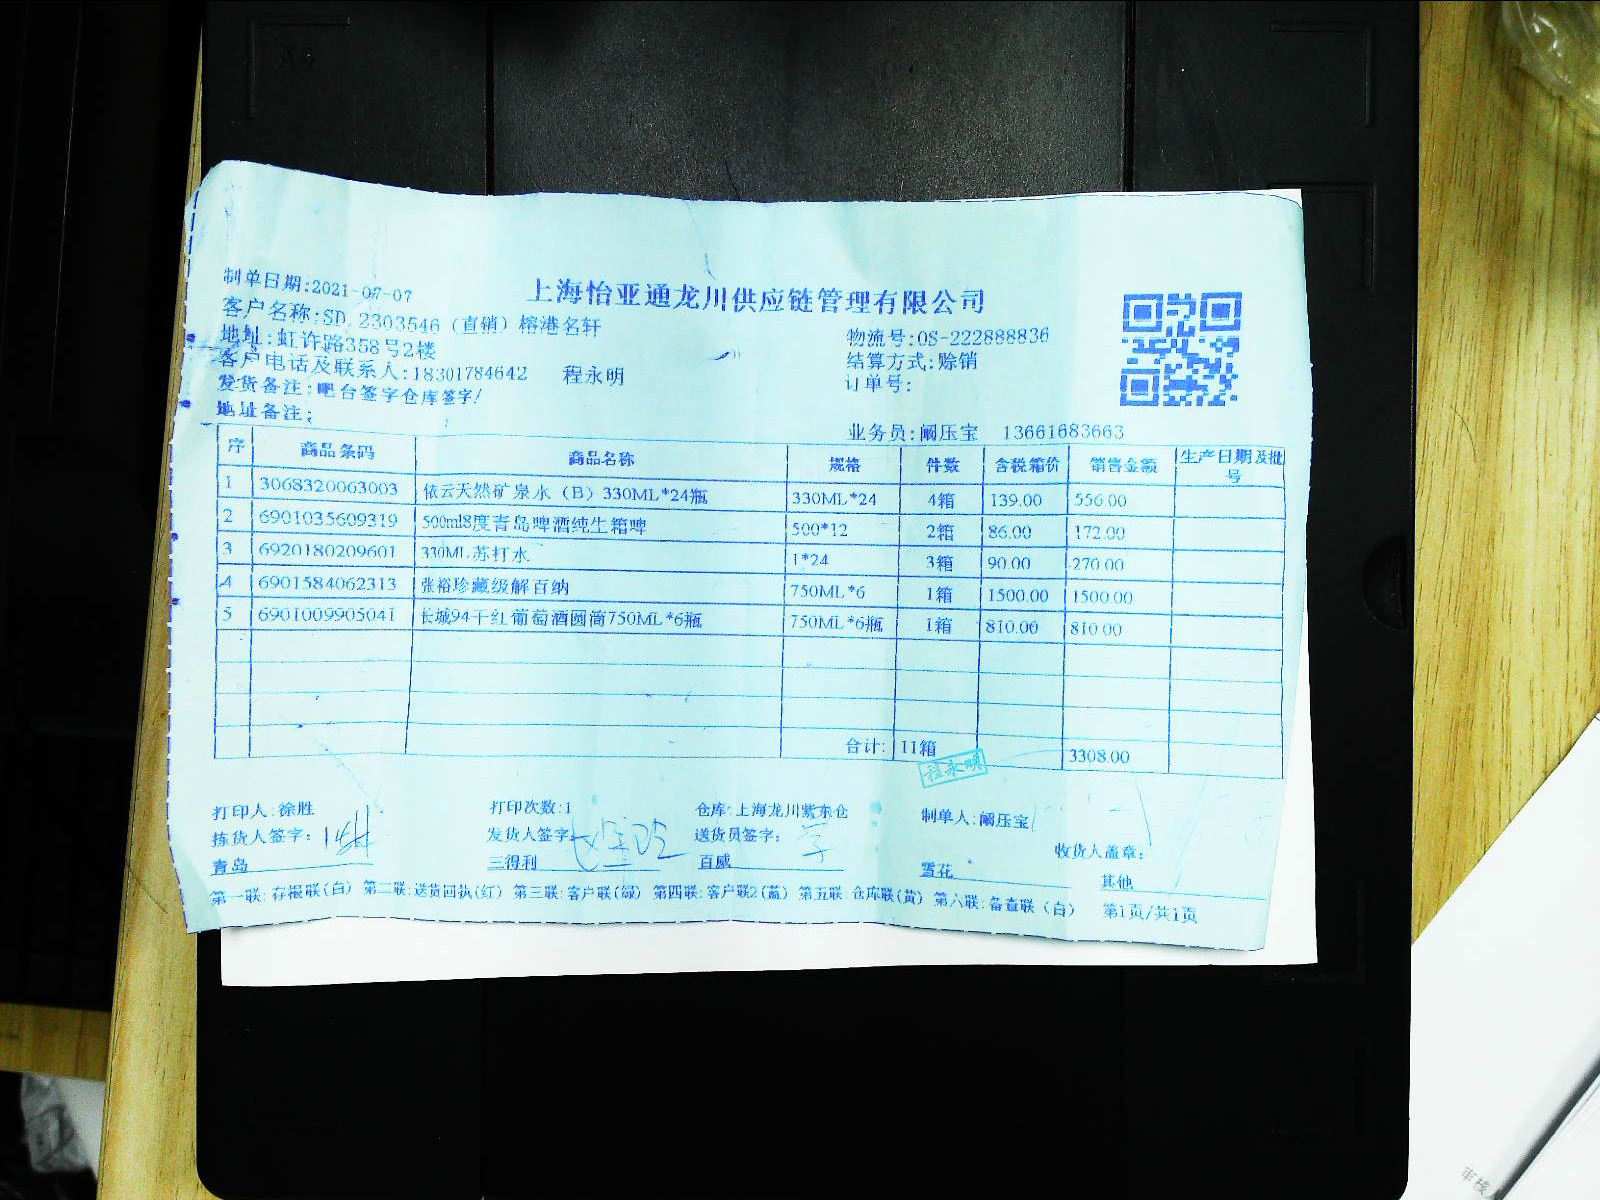 上海怡亚通龙川供应链管理有限公司
制单日期:2021-07-07
客户名称:SD.2303546（直销）榕港名轩
物流号:OS-222888836
地址:虹许路358号2楼
结算方式:赊销
客户电话及联系人:18301784642 程永明
订单号:
发货备注:吧台签字仓库签字!
地址备注:
业务员:阚压宝 13661683663
序 商品条码 商品名称 规格 件数 含税箱价 销售金额 生产日期及批号
1 3068320063003 依云天然矿泉水（B）330ML*24瓶 330ML*24 4箱 139.00 556.00
2 6901035609319 500ml8度青岛啤酒纯生箱啤 500*12 2箱 86.00 172.00
3 6920180209601 330ML苏打水 1*24 3箱 90.00 270.00
4 6901584062313 张裕珍藏级解百纳 750ML*6 1箱 1500.00 1500.00
5 6901009905041 长城94干红葡萄酒圆筒750ML*6瓶 750ML*6瓶 1箱 810.00 810.00
合计: 11箱 3308.00
程永明
打印人:徐胜 打印次数:1 仓库:上海龙川紫东仓 制单人:阚压宝
拣货人签字: 发货人签字: 送货员签字: 收货人盖章:
青岛 三得利 百威 雪花 其他
第一联:存根联(白) 第二联:送货回执(红) 第三联:客户联(绿) 第四联:客户联2(蓝) 第五联:仓库联(黄) 第六联:备查联（白） 第1页/共1页
审核